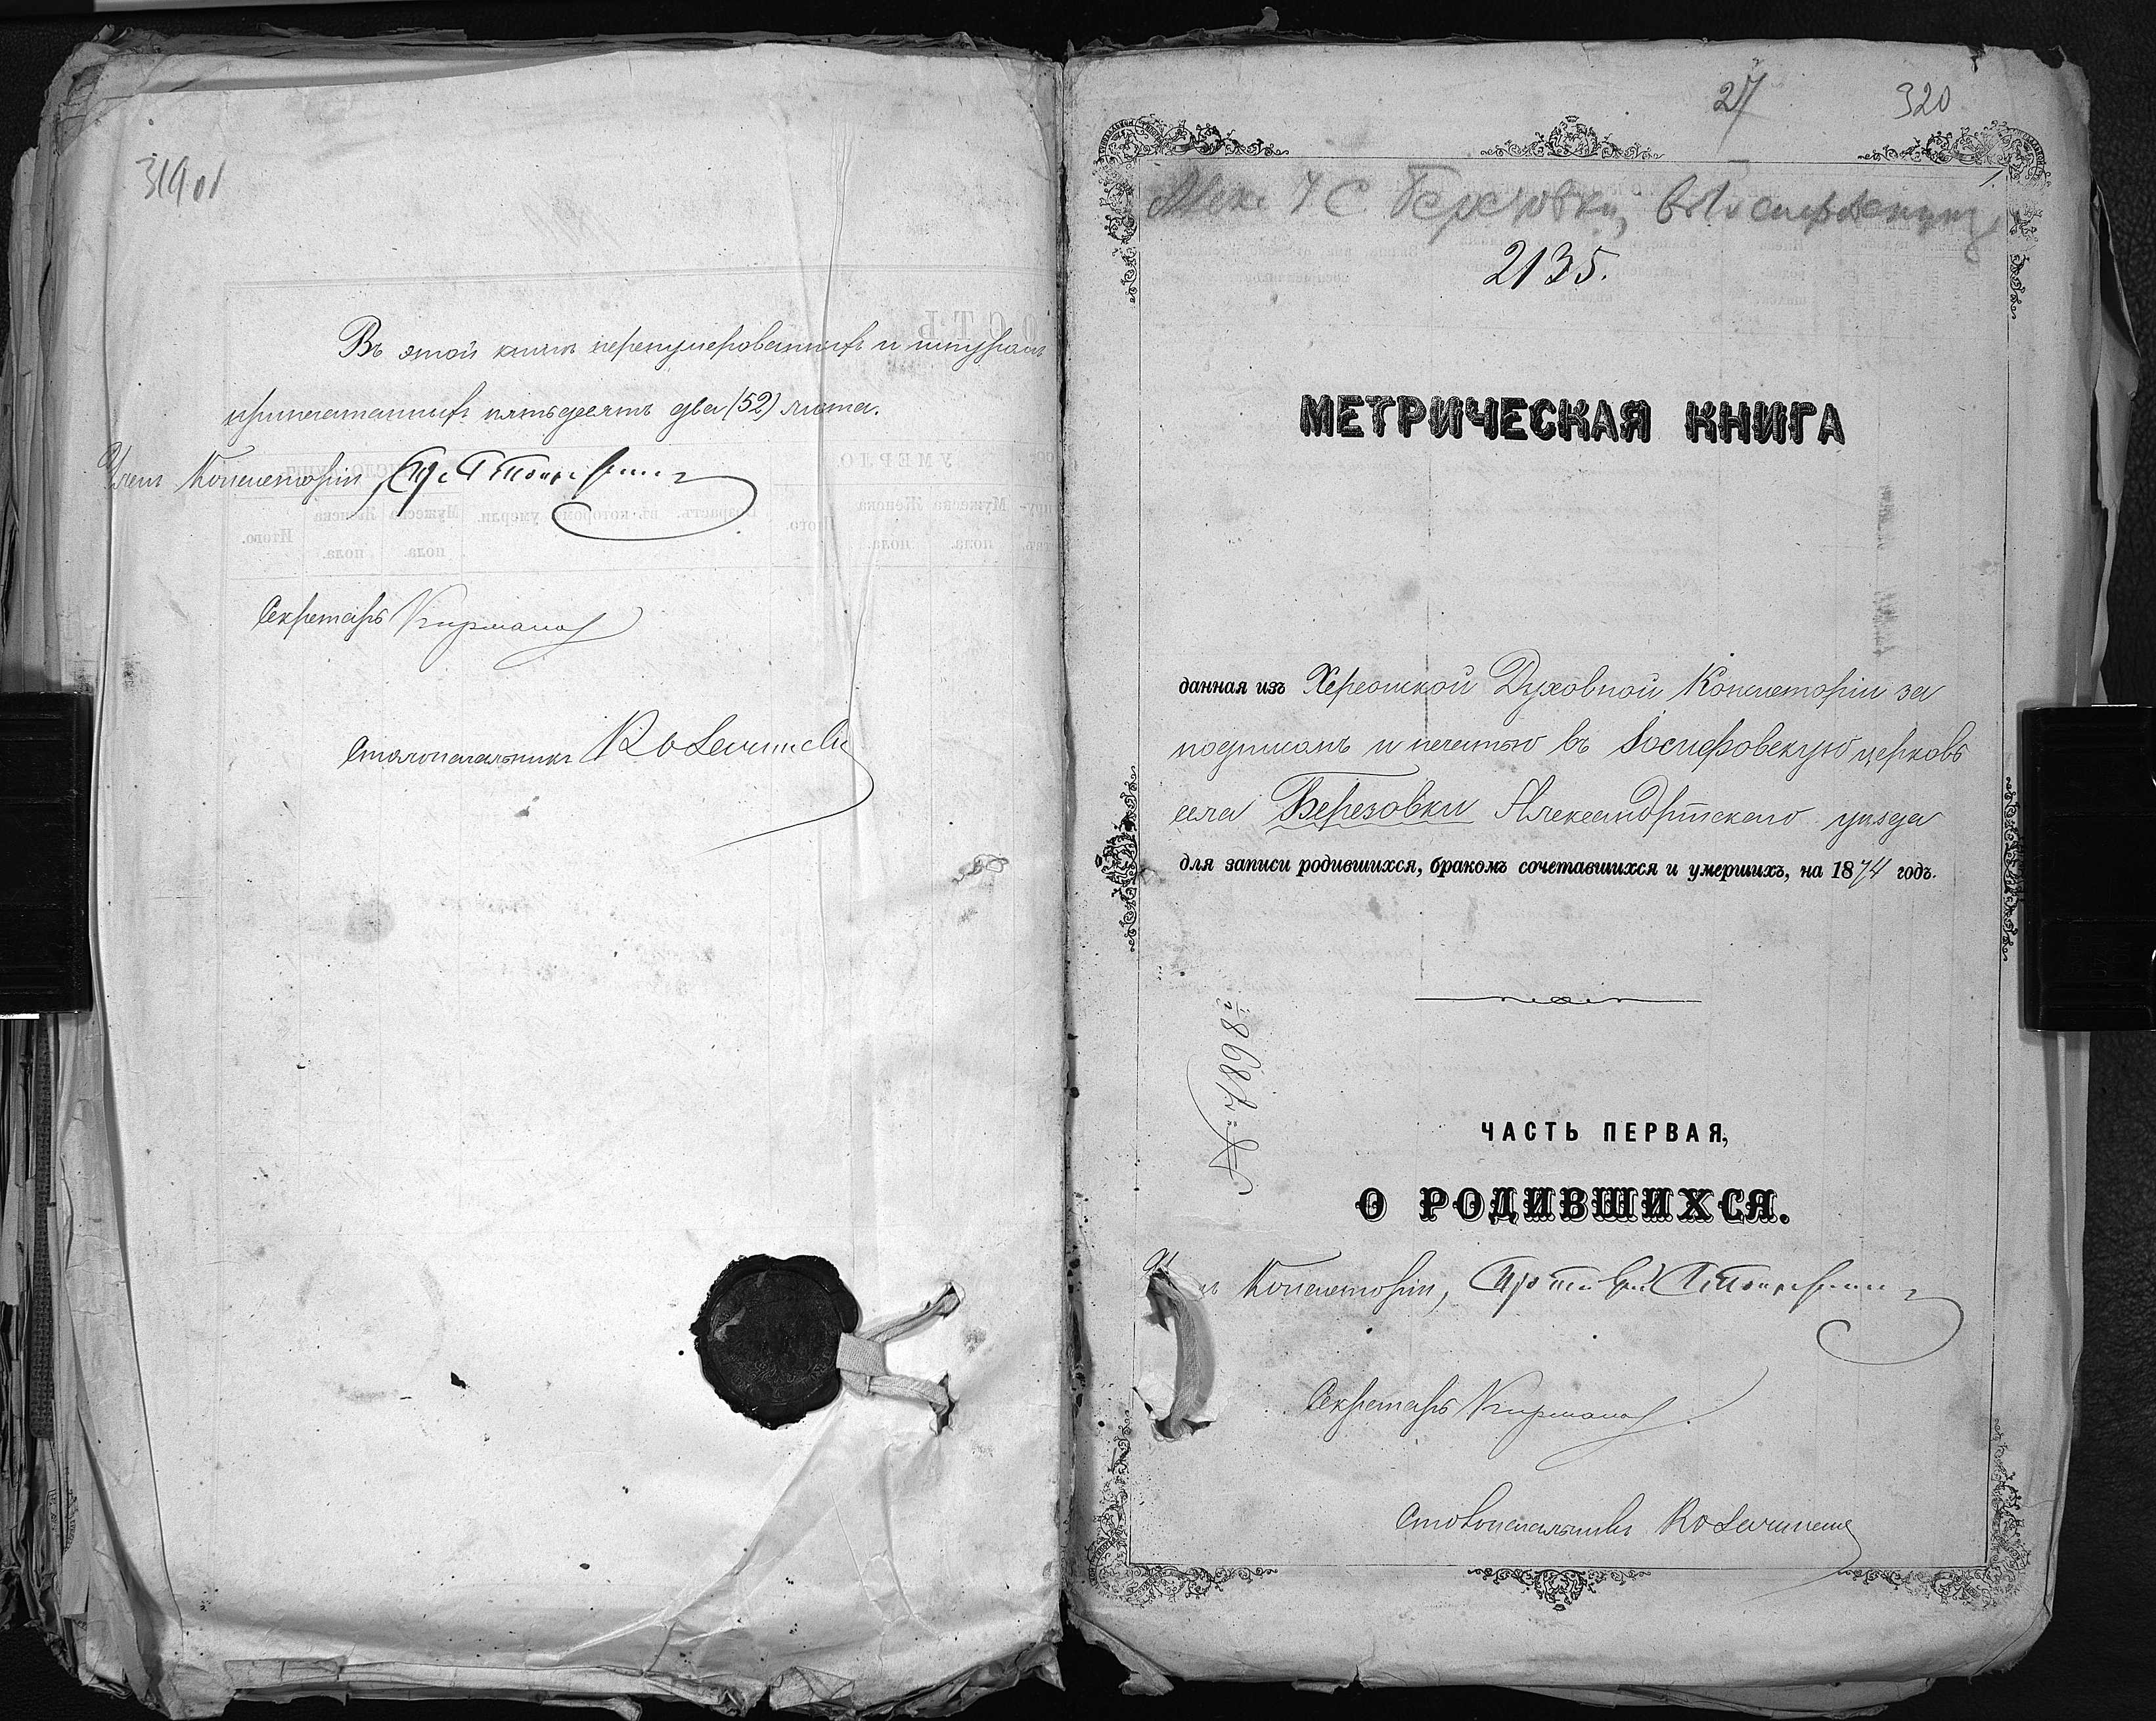 319 об
Въ этой книгѣ перенумерованныхъ и шнуромъ
припечатанныхъ пятьдесятъ два (52) листа.
Членъ Консисторіи
Секретарь
Столоначальникъ
27
320
1.
С. Березовки,
2135.
МЕТРИЧЕСКАЯ КНИГА
данная изъ Херсонской Духовной Консисторіи за
подписомъ и печатью въ Іосифовскую церковь
села Березовки Александрійскаго уѣзда
для записи родившихся, бракомъ сочетавшихся и умершихъ, на 1874 годъ.
№ 7898
ЧАСТЬ ПЕРВАЯ,
О РОДИВШИХСЯ.
Консисторіи, Протоіерей
Секретарь
Столоначальникъ